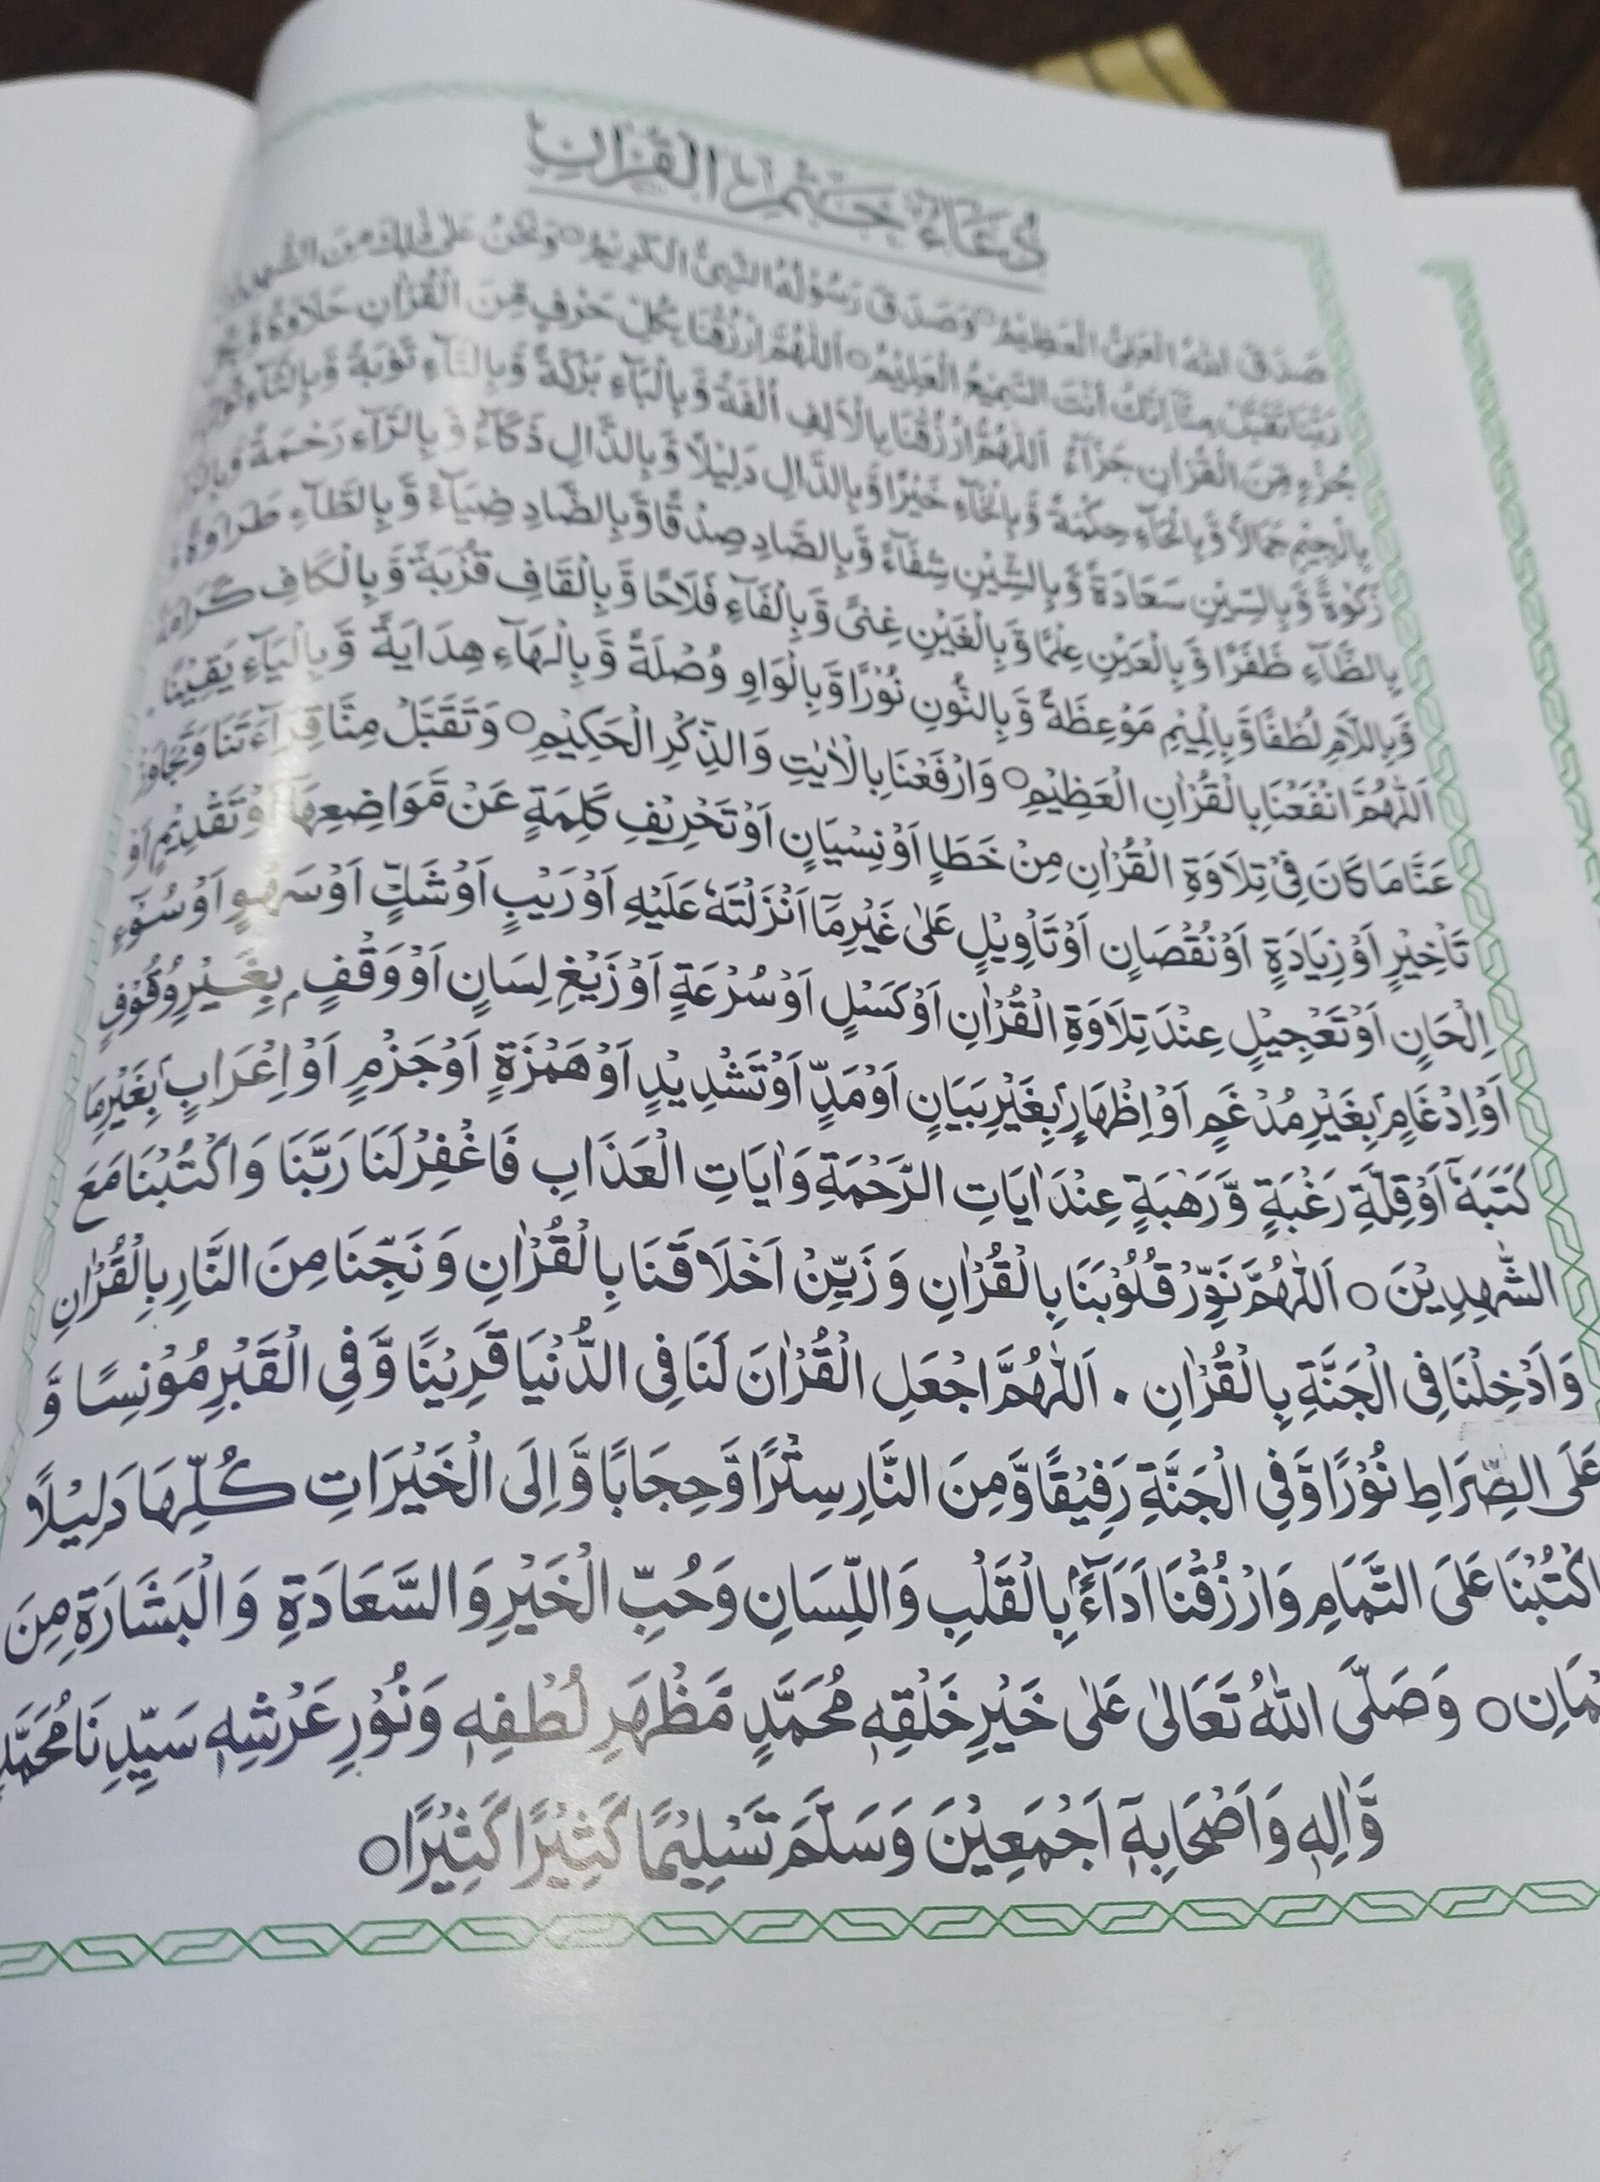 دُعَاءُ خَتْمِ الْقُرْاٰنِ
صَدَقَ اللّٰهُ الْعَلِیُّ الْعَظِیْمُ○ وَصَدَقَ رَسُوْلُهُ النَّبِیُّ الْكَرِیْمُ○ وَنَحْنُ عَلٰی ذٰلِكَ مِنَ الشّٰهِدِیْنَ
رَبَّنَا تَقَبَّلْ مِنَّا اِنَّكَ اَنْتَ السَّمِیْعُ الْعَلِیْمُ○ اَللّٰهُمَّ ارْزُقْنَا بِكُلِّ حَرْفٍ مِّنَ الْقُرْاٰنِ حَلَاوَةً وَّبِكُلِّ
جُزْءٍ مِّنَ الْقُرْاٰنِ جَزَآءً اَللّٰهُمَّ ارْزُقْنَا بِالْاَلِفِ اُلْفَةً وَّبِالْبَآءِ بَرَكَةً وَّبِالتَّآءِ تَوْبَةً وَّبِالثَّآءِ
بِالْجِیْمِ جَمَالًا وَّبِالْحَآءِ حِكْمَةً وَّبِالْخَآءِ خَیْرًا وَّبِالدَّالِ دَلِیْلًا وَّبِالذَّالِ ذَكَآءً وَّبِالرَّآءِ رَحْمَةً
زَكٰوةً وَّبِالسِّیْنِ سَعَادَةً وَّبِالشِّیْنِ شِفَآءً وَّبِالصَّادِ صِدْقًا وَّبِالضَّادِ ضِیَآءً وَّبِالطَّآءِ طَرَاوَةً وَّ
بِالظَّآءِ ظَفَرًا وَّبِالْعَیْنِ عِلْمًا وَّبِالْغَیْنِ غِنًی وَّبِالْفَآءِ فَلَاحًا وَّبِالْقَافِ قُرْبَةً وَّبِالْكَافِ كَرَامَةً
وَّبِاللَّامِ لُطْفًا وَّبِالْمِیْمِ مَوْعِظَةً وَّبِالنُّوْنِ نُوْرًا وَّبِالْوَاوِ وُصْلَةً وَّبِالْهَآءِ هِدَایَةً وَّبِالْیَآءِ یَقِیْنًا.
اَللّٰهُمَّ انْفَعْنَا بِالْقُرْاٰنِ الْعَظِیْمِ○ وَارْفَعْنَا بِالْاٰیٰتِ وَالذِّكْرِ الْحَكِیْمِ○ وَتَقَبَّلْ مِنَّا قِرَآءَتَنَا وَتَجَاوَزْ
عَنَّا مَا كَانَ فِیْ تِلَاوَةِ الْقُرْاٰنِ مِنْ خَطَاٍ اَوْ نِسْیَانٍ اَوْ تَحْرِیْفِ كَلِمَةٍ عَنْ مَّوَاضِعِهَا اَوْ تَقْدِیْمٍ اَوْ
تَاْخِیْرٍ اَوْ زِیَادَةٍ اَوْ نُقْصَانٍ اَوْ تَاْوِیْلٍ عَلٰی غَیْرِ مَآ اَنْزَلْتَهٗ عَلَیْهِ اَوْ رَیْبٍ اَوْ شَكٍّ اَوْ سَهْوٍ اَوْ سُوْٓءِ
اِلْحَانٍ اَوْ تَعْجِیْلٍ عِنْدَ تِلَاوَةِ الْقُرْاٰنِ اَوْ كَسَلٍ اَوْ سُرْعَةٍ اَوْ زَیْغِ لِسَانٍ اَوْ وَقْفٍ بِغَیْرِ وُقُوْفٍ
اَوْ اِدْغَامٍ بِغَیْرِ مُدْغَمٍ اَوْ اِظْهَارٍ بِغَیْرِ بَیَانٍ اَوْ مَدٍّ اَوْ تَشْدِیْدٍ اَوْ هَمْزَةٍ اَوْ جَزْمٍ اَوْ اِعْرَابٍ بِغَیْرِ مَا
كَتَبَهٗ اَوْ قِلَّةِ رَغْبَةٍ وَّرَهْبَةٍ عِنْدَ اٰیَاتِ الرَّحْمَةِ وَاٰیَاتِ الْعَذَابِ فَاغْفِرْ لَنَا رَبَّنَا وَاكْتُبْنَا مَعَ
الشّٰهِدِیْنَ○ اَللّٰهُمَّ نَوِّرْ قُلُوْبَنَا بِالْقُرْاٰنِ وَزَیِّنْ اَخْلَاقَنَا بِالْقُرْاٰنِ وَنَجِّنَا مِنَ النَّارِ بِالْقُرْاٰنِ
وَاَدْخِلْنَا فِی الْجَنَّةِ بِالْقُرْاٰنِ. اَللّٰهُمَّ اجْعَلِ الْقُرْاٰنَ لَنَا فِی الدُّنْیَا قَرِیْنًا وَّفِی الْقَبْرِ مُوْنِسًا وَّ
عَلَی الصِّرَاطِ نُوْرًا وَّفِی الْجَنَّةِ رَفِیْقًا وَّمِنَ النَّارِ سِتْرًا وَّحِجَابًا وَّاِلَی الْخَیْرَاتِ كُلِّهَا دَلِیْلًا
اكْتُبْنَا عَلَی التَّمَامِ وَارْزُقْنَا اَدَآءً بِالْقَلْبِ وَاللِّسَانِ وَحُبِّ الْخَیْرِ وَالسَّعَادَةِ وَالْبَشَارَةِ مِنَ
○ وَصَلَّی اللّٰهُ تَعَالٰی عَلٰی خَیْرِ خَلْقِهٖ مُحَمَّدٍ مَّظْهَرِ لُطْفِهٖ وَنُوْرِ عَرْشِهٖ سَیِّدِنَا مُحَمَّدٍ
وَّاٰلِهٖ وَاَصْحَابِهٖٓ اَجْمَعِیْنَ وَسَلَّمَ تَسْلِیْمًا كَثِیْرًا كَثِیْرًا○